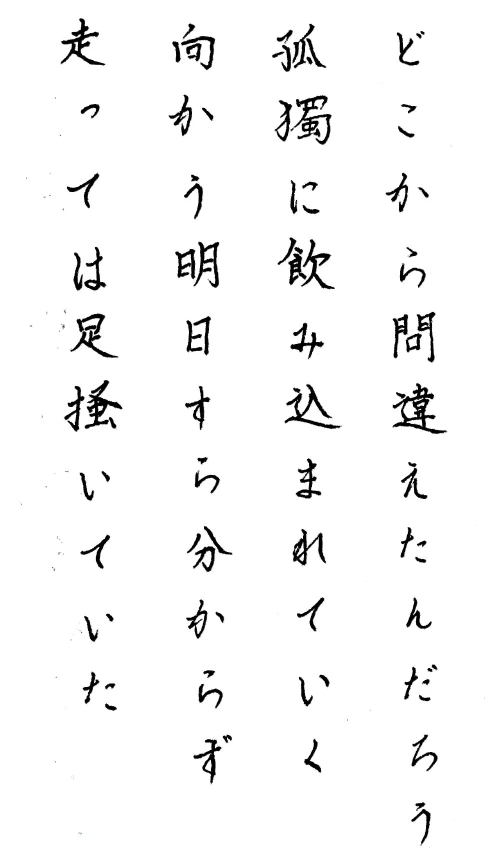 どこから問違えたんだろう
孤獨に飲み込まれていく
向かう明日すら分からず
走っては足掻いていた